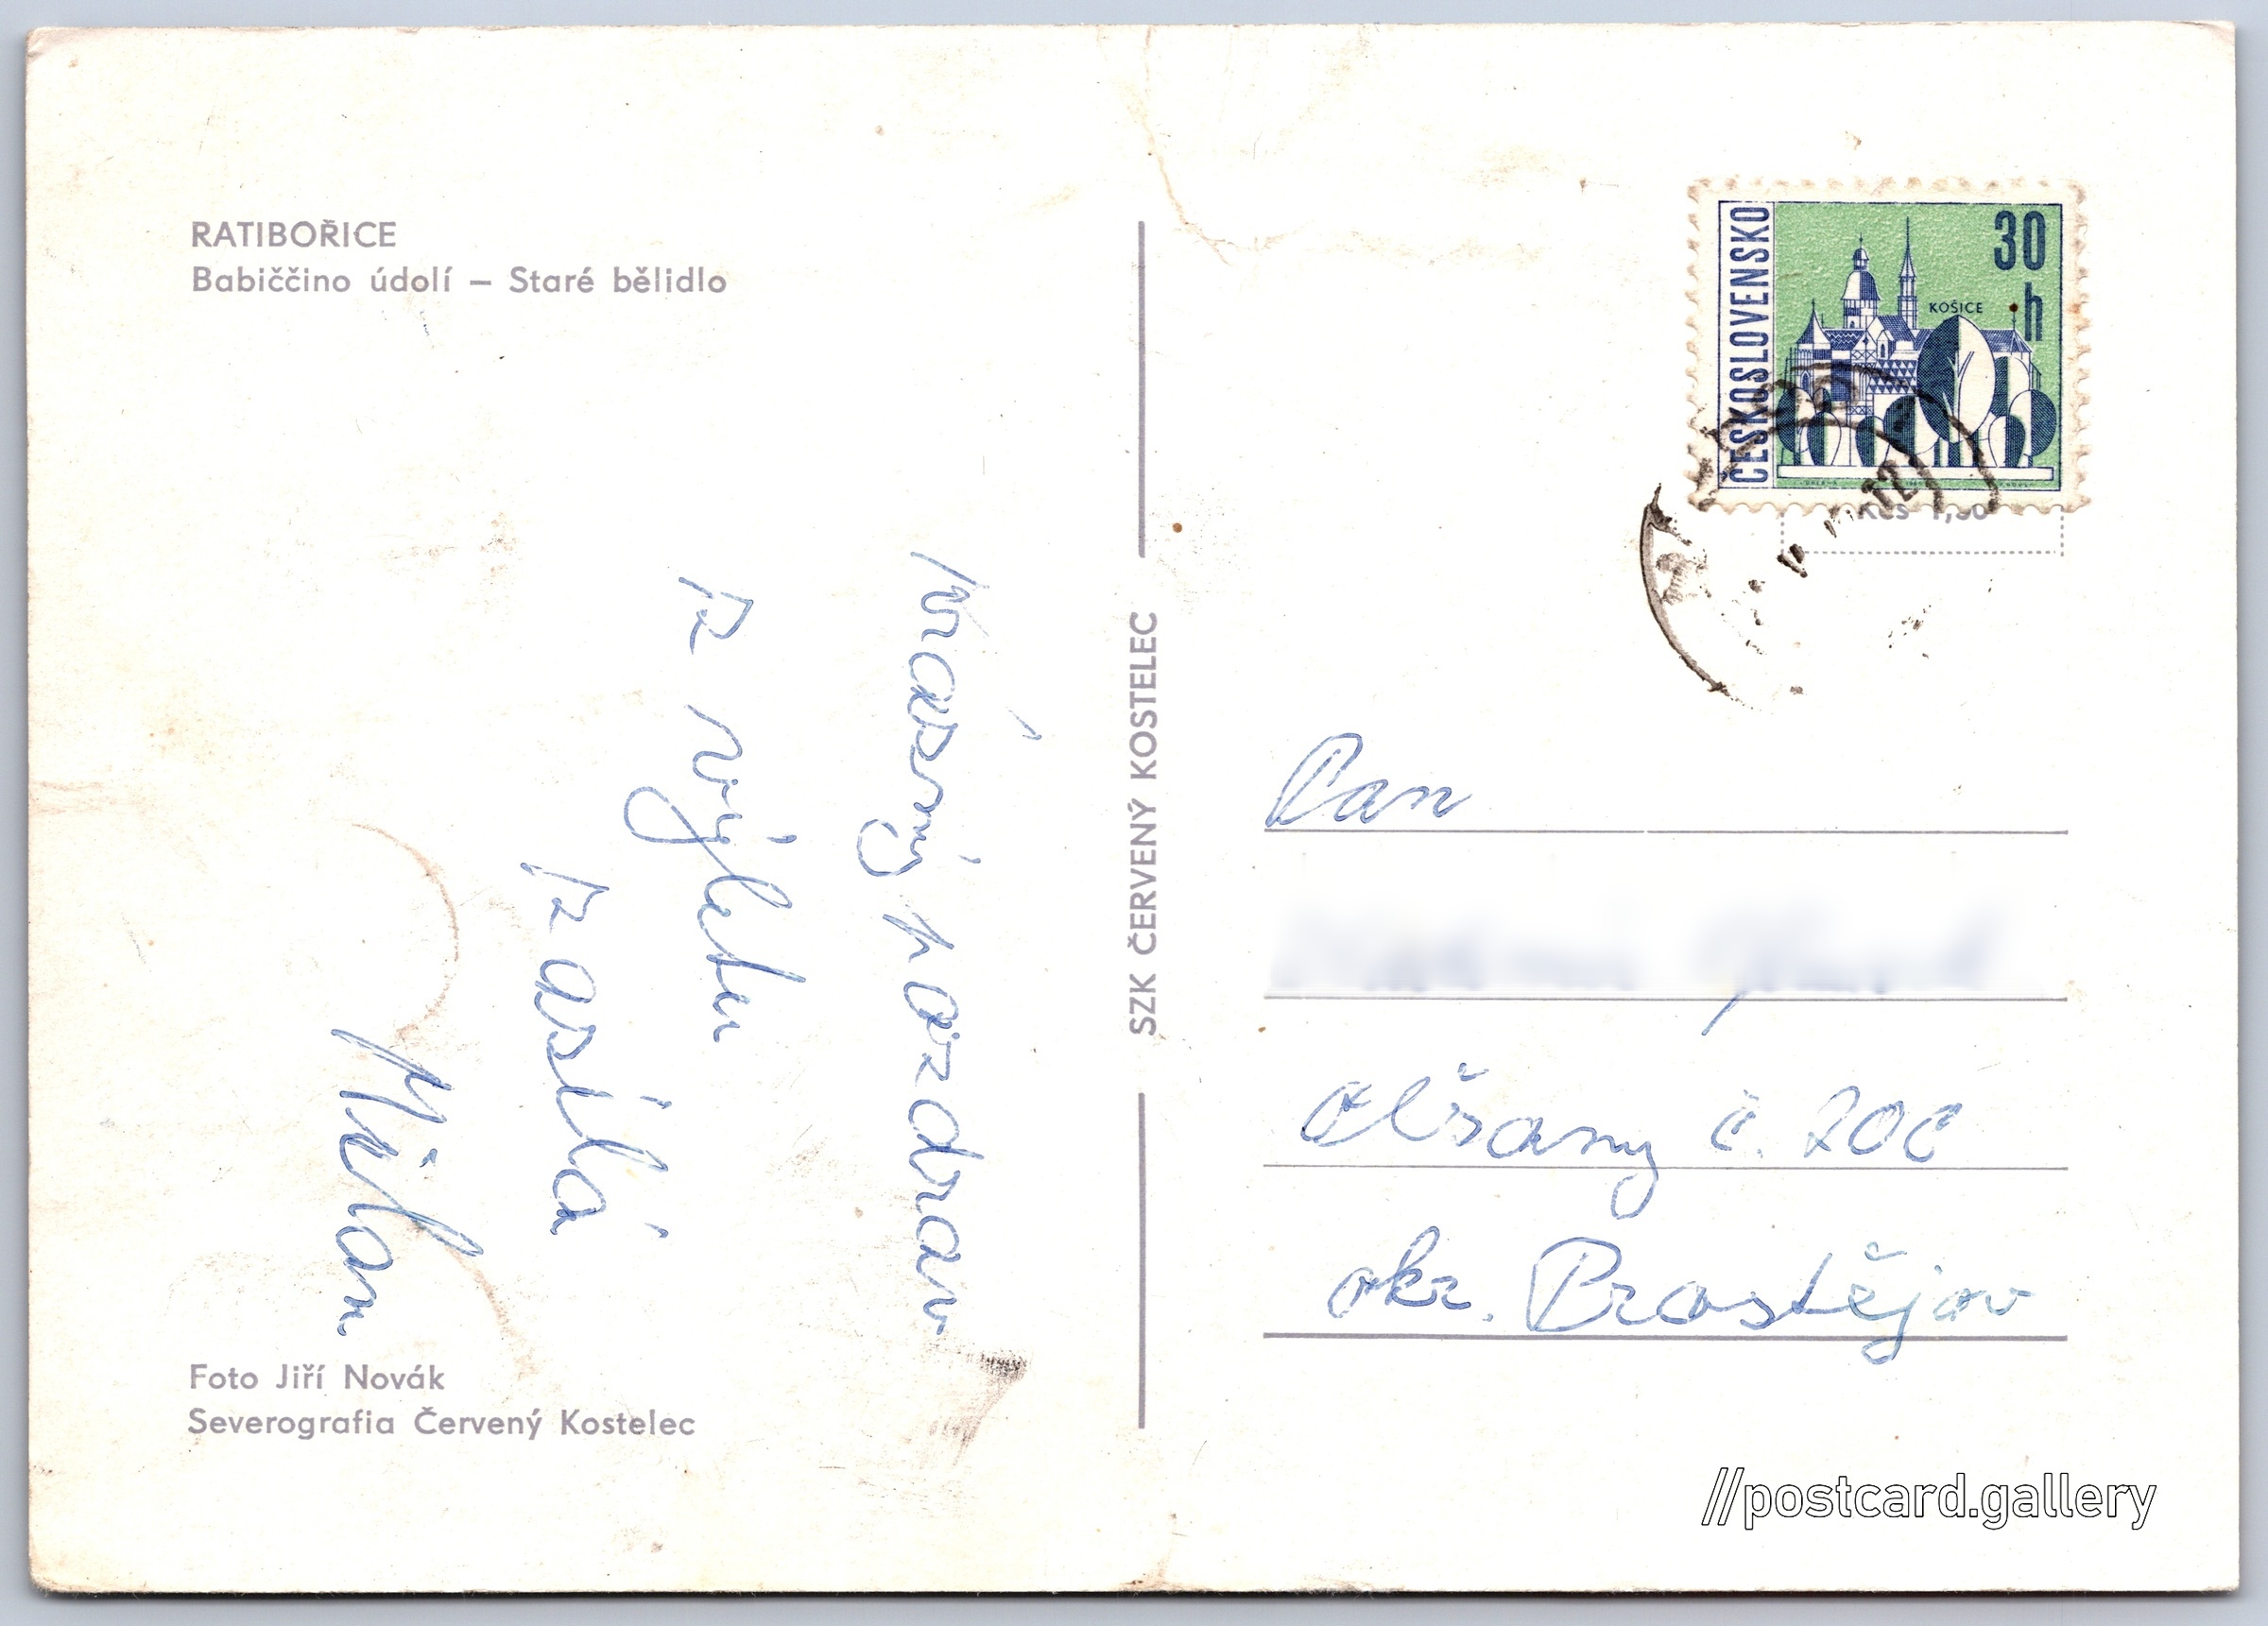 RATIBOŘICE
Babiččino údolí – Staré bělidlo
Krásný pozdrav
z výletu
zasílá
Milan
Foto Jiří Novák
Severografia Červený Kostelec
SZK ČERVENÝ KOSTELEC
ČESKOSLOVENSKO
30
h
KOŠICE
Kčs 1,50
Pan
Olšany č. 20
okr. Prostějov
//postcard.gallery